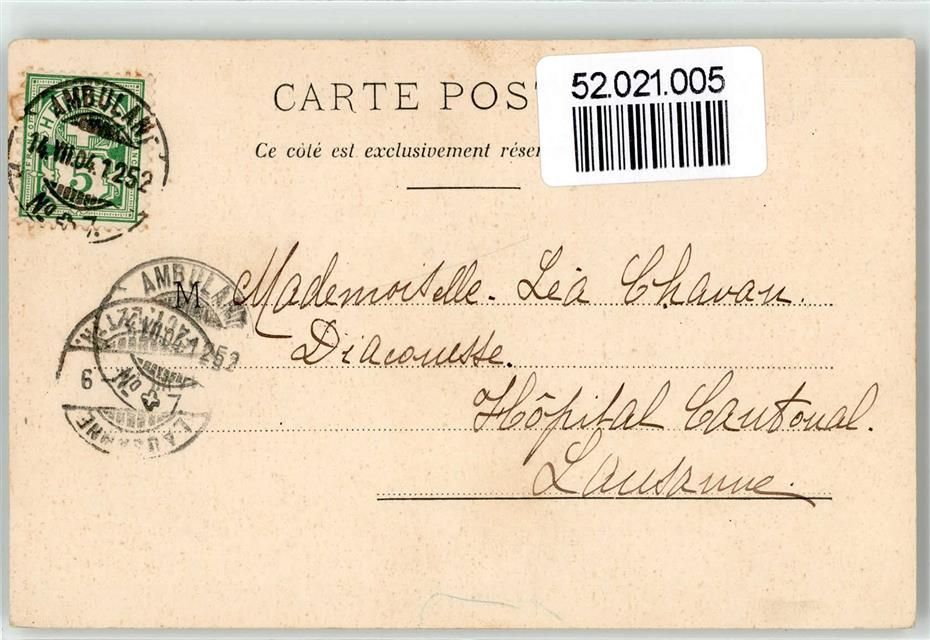 CARTE POST
52.021.005
Ce côté est exclusivement réser
AMBULANT
14.VIII.04.1252
No 7.
5
M Mademoiselle. Léa Chavan.
Diaconesse.
Hôpital Cantonal.
Lausanne.
AMBULANT
1252
No 7
6
LAUSANNE